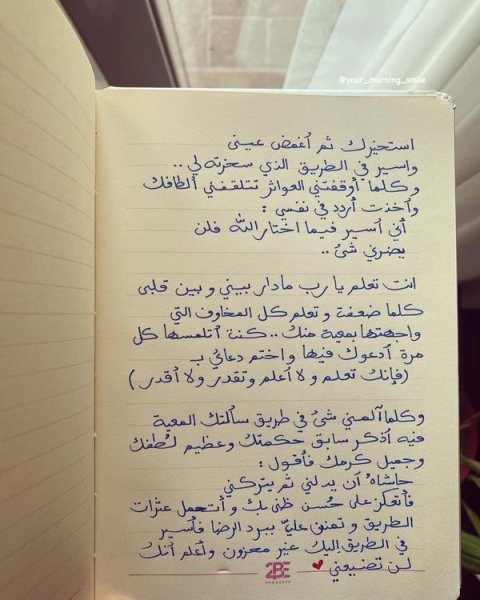 @your_morning_smile
استخيرك ثم أغمض عيني
واسير في الطريق الذي سخرته لي ..
وكلما أوقفتني العواثر تتلقفني ألطافك
وأخذت أردد في نفسي :
أني أسير فيما اختار الله فلن
يضرني شئ ..
انت تعلم يا رب ما دار بيني و بين قلبي
كلما ضعفت و تعلم كل المخاوف التي
واجهتها بمعية منك .. كنت أتلمسها كل
مرة أدعوك فيها و اختم دعائي ب
(فإنك تعلم و لا أعلم وتقدر ولا أقدر)
وكلما آلمني شئ في طريق سألتك المعية
فيه أذكر سابق حكمتك وعظيم لطفك
وجميل كرمك فأقول :
حاشاه أن يدلني ثم يتركني
فأتعكز على حسن ظني بك و أتحمل عثرات
الطريق و تمنن علي ببرد الرضا فأسير
في الطريق إليك غير محزون وأعلم أنك
لن تضيعني
2BE
PRODUCTS